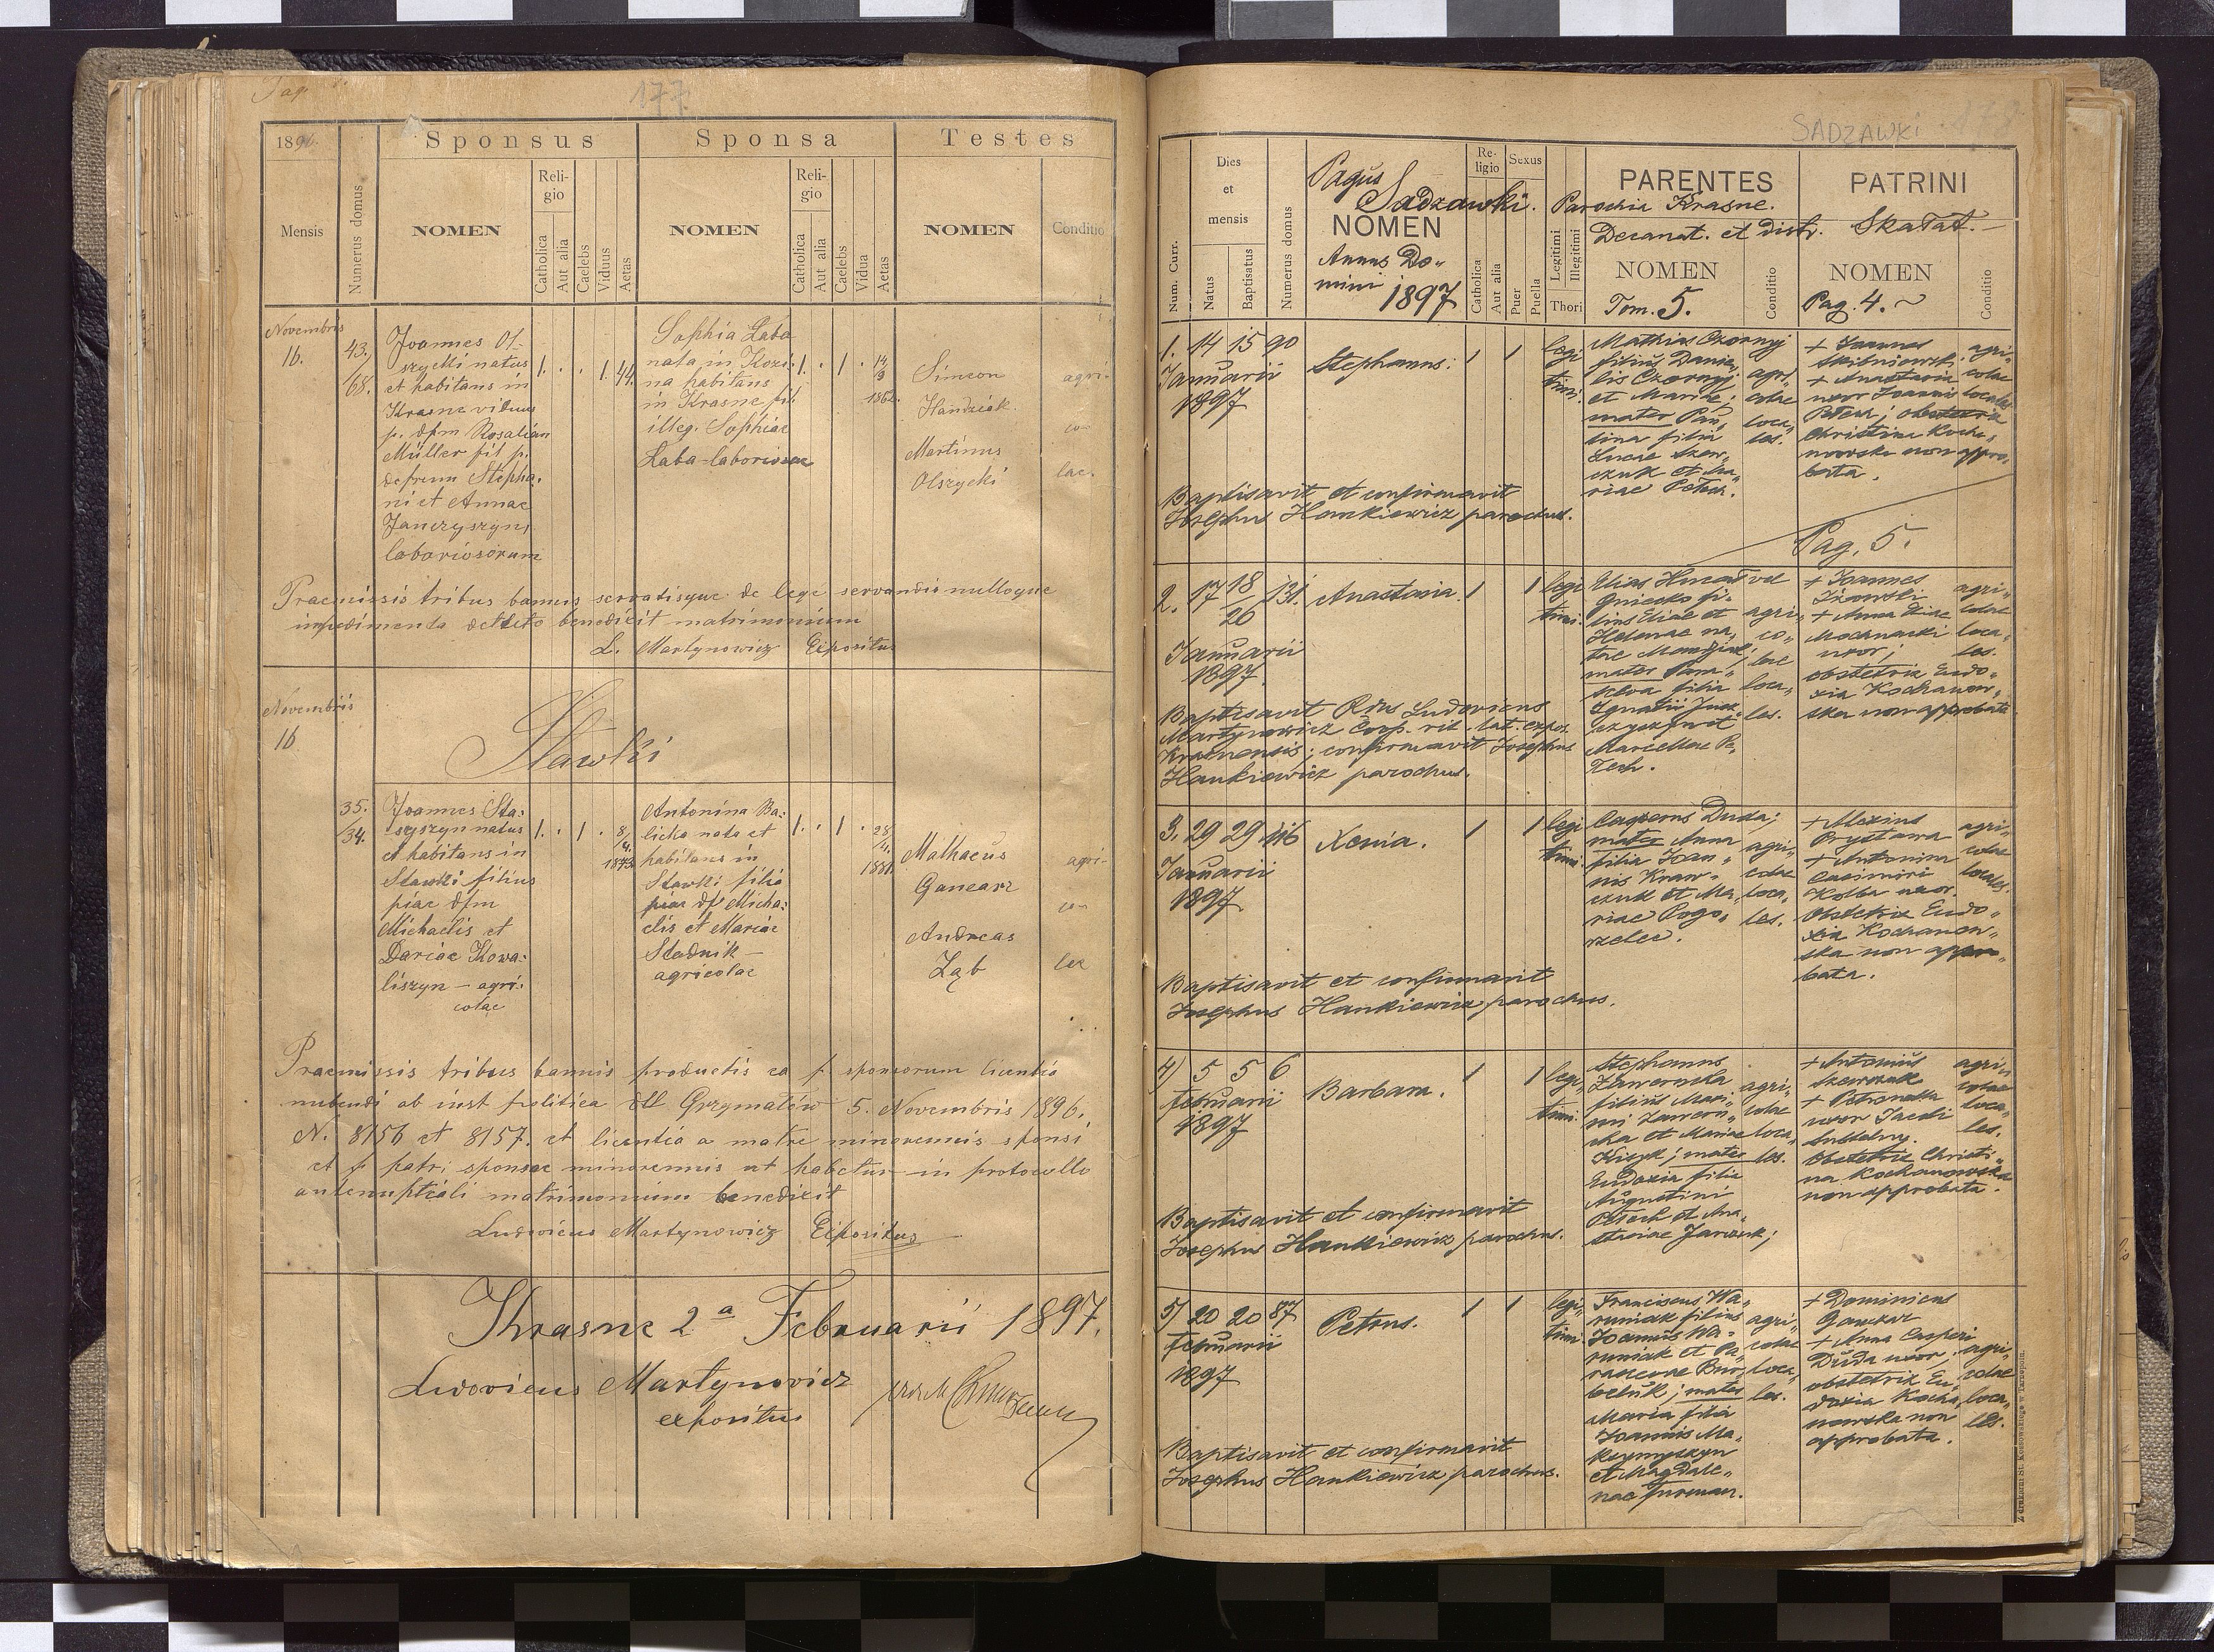 Pag.
177
1896.
Sponsus
Sponsa
Testes
Mensis
Numerus domus
NOMEN
Religio
Catholica
Aut alia
Caelebs
Viduus
Aetas
NOMEN
Religio
Catholica
Aut alia
Caelebs
Vidua
Aetas
NOMEN
Conditio
Novembris
16.
43.
68.
Joannes Ol-
szycki natus
et habitans in
Krasne viduus
p. dfm Rosalian
Müller fil p.
defnm Stepha-
ni et Annae
Janczyszyn,
laboriosorum
1. . . 1. 44.
Sophia Łaba
nata in Kozi-
na habitans
in Krasne fil.
illeg. Sophiae
Łaba-laboriosae
1. . 1 .
1862.
Simeon
Handziak.
Martinus
Olszycki
agri-
co-
lae.
Praemissis tribus bannis servatisque de lege servandis nulloque
impedimento detecto benedixit matrimonium
L. Martynowicz Expositus
Novembris
16
Stawki
35.
34.
Joannes Sta-
szyszyn natus
et habitans in
Stawki filius
piae dfm
Michaelis et
Dariae Kowa-
liszyn - agri-
colae
1. . 1 . 8/4. 1873.
Antonina Ba-
licka nata et
habitans in
Stawki filia
piae df Micha-
elis et Mariae
Stadnik -
agricolae
1. . 1 .
Mathaeus
Gancarz
Andreas
Ząb
agri-
co-
lae
Praemissis tribus bannis productis ea p. sponsorum licentia
nubendi ab inst politica dll Grzymałów 5. Novembris 1896.
N. 8156 et 8157. et licentia a matre minorennis sponsi
et p. patri sponsae minorennis ut habetur in protocollo
antenuptiali matrimonium benedixit
Ludovicus Martynowicz Expositus
Krasne 2a Februarii 1897.
Ludovicus Martynowicz
expositus
SADZAWKI
Num. Curr.
Dies et mensis
Natus
Baptisatus
Numerus domus
Pagus
Sadzawki.
NOMEN
Annus Do-
mini 1897
Religio
Catholica
Aut alia
Sexus
Puer
Puella
Legitimi
Illegitimi
Thori
PARENTES
PATRINI
Parochia Krasne.
Decanat. et distr. Skałat.
NOMEN
Conditio
NOMEN
Conditio
Tom. 5.
Pag. 4.
1. 14 15 90
Januarii
1897
Stephanus.
1 1
legi-
timi.
Mathias Czornyj
filius Danie-
lis Czornyj
et Mariae;
mater Pau-
lina filia
Lucae Szew-
czuk et Ma-
riae Petech.
agri-
colae
loca-
les.
+ Joannes
Skibniewski
+ Anastasia
uxor Joannis
Petech; obstetrix
Christina Kocha-
nowska non appro-
bata.
agri-
colae
locales
Baptisavit et confirmavit
Josephus Hankiewicz parochus.
Pag. 5.
2. 17 18/26 131.
Januarii
1897.
Anastasia.
1 1
legi-
timi.
Elias Hucał vel
Gniecko fi-
lius Eliae et
Helenae na-
tae
mater Para-
sceva filia
Ignatii Jusz-
czyszyn et
Marcellae Pe-
tech.
agri-
co-
lae
loca-
les.
+ Joannes
Iżowski
+ Anna Eliae
Mochnacki
uxor;
obstetrix Eudo-
xia Kochanow-
ska non approbata
agri-
colae
loca-
les.
Baptisavit Rdus Ludovicus
Martynowicz Coop. rit. lat. expos.
Krasnensis; confirmavit Josephus
Hankiewicz parochus.
3. 29 29 116
Januarii
1897.
Xenia.
1 1
legi-
timi.
Casperus Duda;
mater Anna
filia Joan-
nis Kraw-
czuk et Ma-
riae Pogo-
rzelec.
agri-
colae
loca-
les.
+ Alexius
Prystawa
+ Antonina
Casimiri
Kolba uxor.
Obstetrix Eudo-
xia Kochanow-
ska non appro-
bata.
agri-
colae
locales.
Baptisavit et confirmavit
Josephus Hankiewicz parochus.
4) 5 5 6
Februarii
1897
Barbara.
1 1
legi-
timi.
Stephanus
Zawerucha
filius Maxi-
mi Zaweru-
cha et Mariae
Kiszyk; mater
Eudoxia filia
Augustini
Petech et Ana-
stasiae Jarczuk;
agri-
colae
loca-
les.
+ Antonius
Szewczuk
+ Petronella
uxor Jacobi
Subtelny.
Obstetrix Christi-
na Kochanowska
non approbata.
agri-
colae
loca-
les.
Baptisavit et confirmavit
Josephus Hankiewicz parochus.
5) 20 20 87
Februarii
1897
Petrus.
1 1
legi-
timi.
Franciscus Wa-
runiak filius
Joannis Wa-
runiak et Pa-
rascevae Bur-
beluk; mater
Maria filia
Joannis Ma-
ksymyszyn
et Magdale-
nae Furman.
agri-
colae
loca-
les.
+ Dominicus
Gancarz
+ Anna Casperi
Duda uxor;
obstetrix Eu-
doxia Kocha-
nowska non
approbata.
agri-
colae
loca-
les.
Baptisavit et confirmavit
Josephus Hankiewicz parochus.
Z drukarni St. Kossowskiego w Tarnopolu.